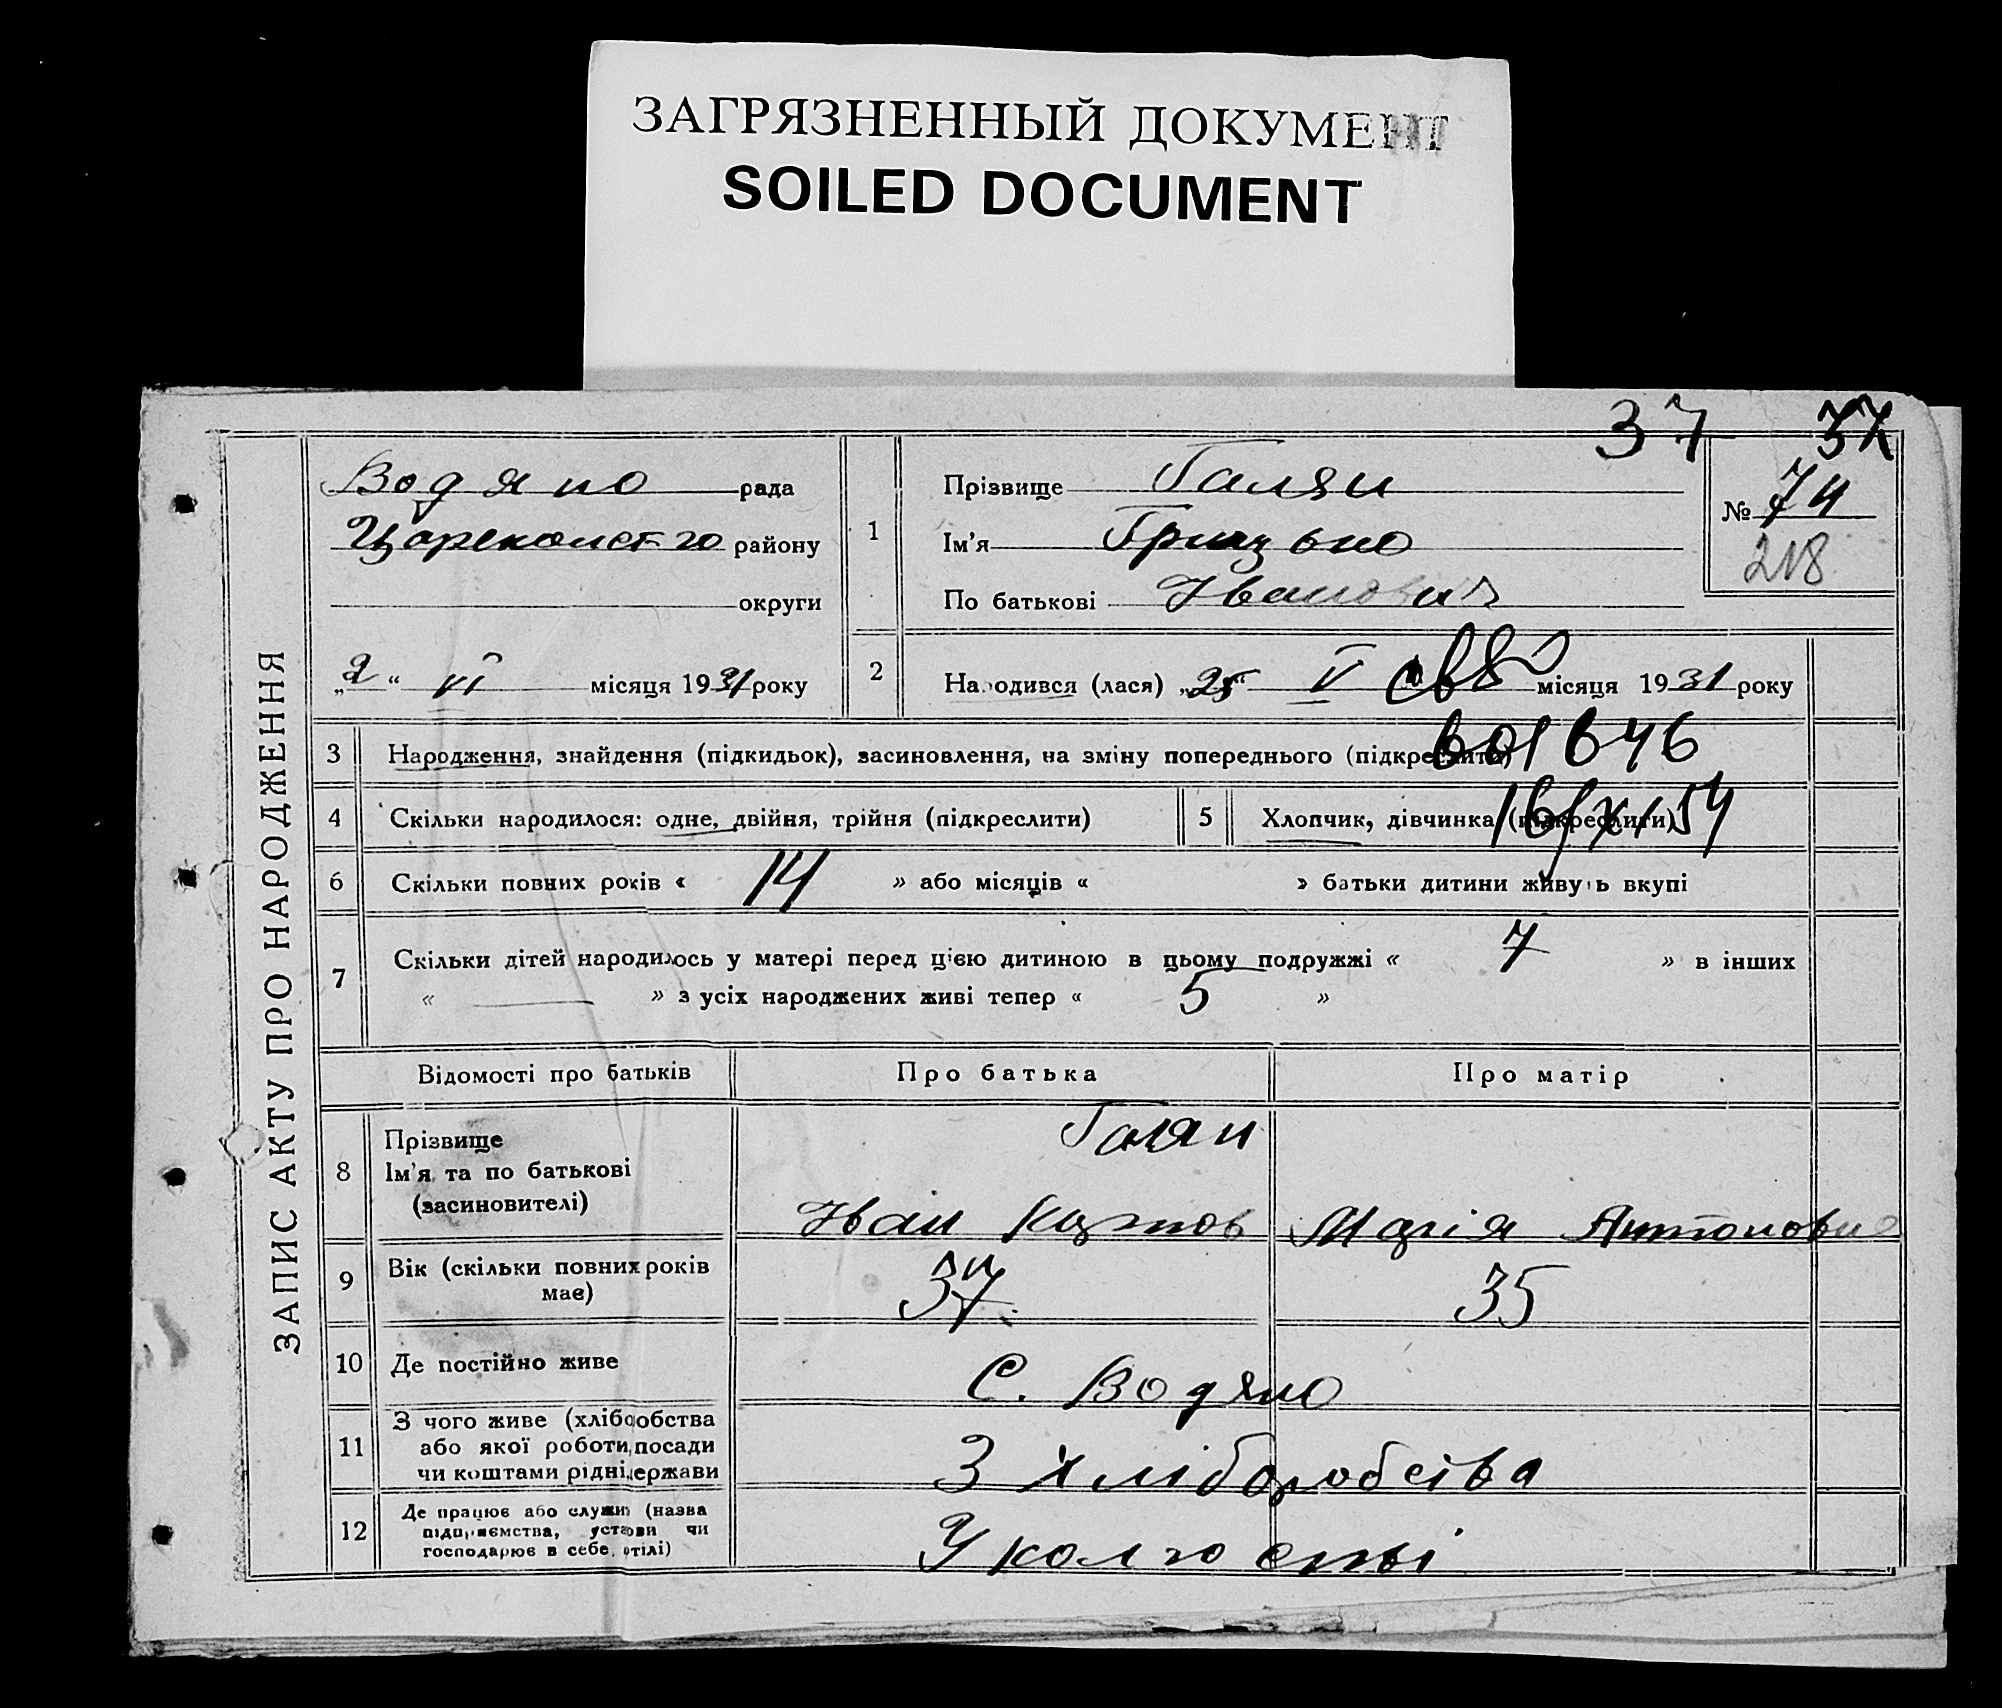 ЗАГРЯЗНЕННЫЙ ДОКУМЕНТ
SOILED DOCUMENT
37 37
ЗАПИС АКТУ ПРО НАРОДЖЕННЯ
Водяно рада
району
округи
„2“ VI місяця 1931 року
1
Прізвище Галян
Ім'я Грицько
По батькові Іванович
№ 74
218
2 Народився (лася) „25“ V місяця 1931 року
3 Народження, знайдення (підкидьок), засиновлення, на зміну попереднього (підкреслити)
4 Скільки народилося: одне, двійня, трійня (підкреслити)
5 Хлопчик, дівчинка (підкреслити)
6 Скільки повних років « 14 » або місяців « » батьки дитини живуть вкупі
7 Скільки дітей народилось у матері перед цією дитиною в цьому подружжі « 7 » в інших
« — » з усіх народжених живі тепер « 5 »
Відомості про батьків Про батька Про матір
8 Прізвище
Ім'я та по батькові
(засиновителі)
Галян
Іван
Марія Антоновна
9 Вік (скільки повних років
має)
37 35
10 Де постійно живе С. Водяно
11 З чого живе (хліборобства
або якої роботи, посади
чи коштами рідні, держави
З хліборобства
12 Де працює або служить (назва
підприємства, установи чи
господарює в себе, отілі)
У колгоспі